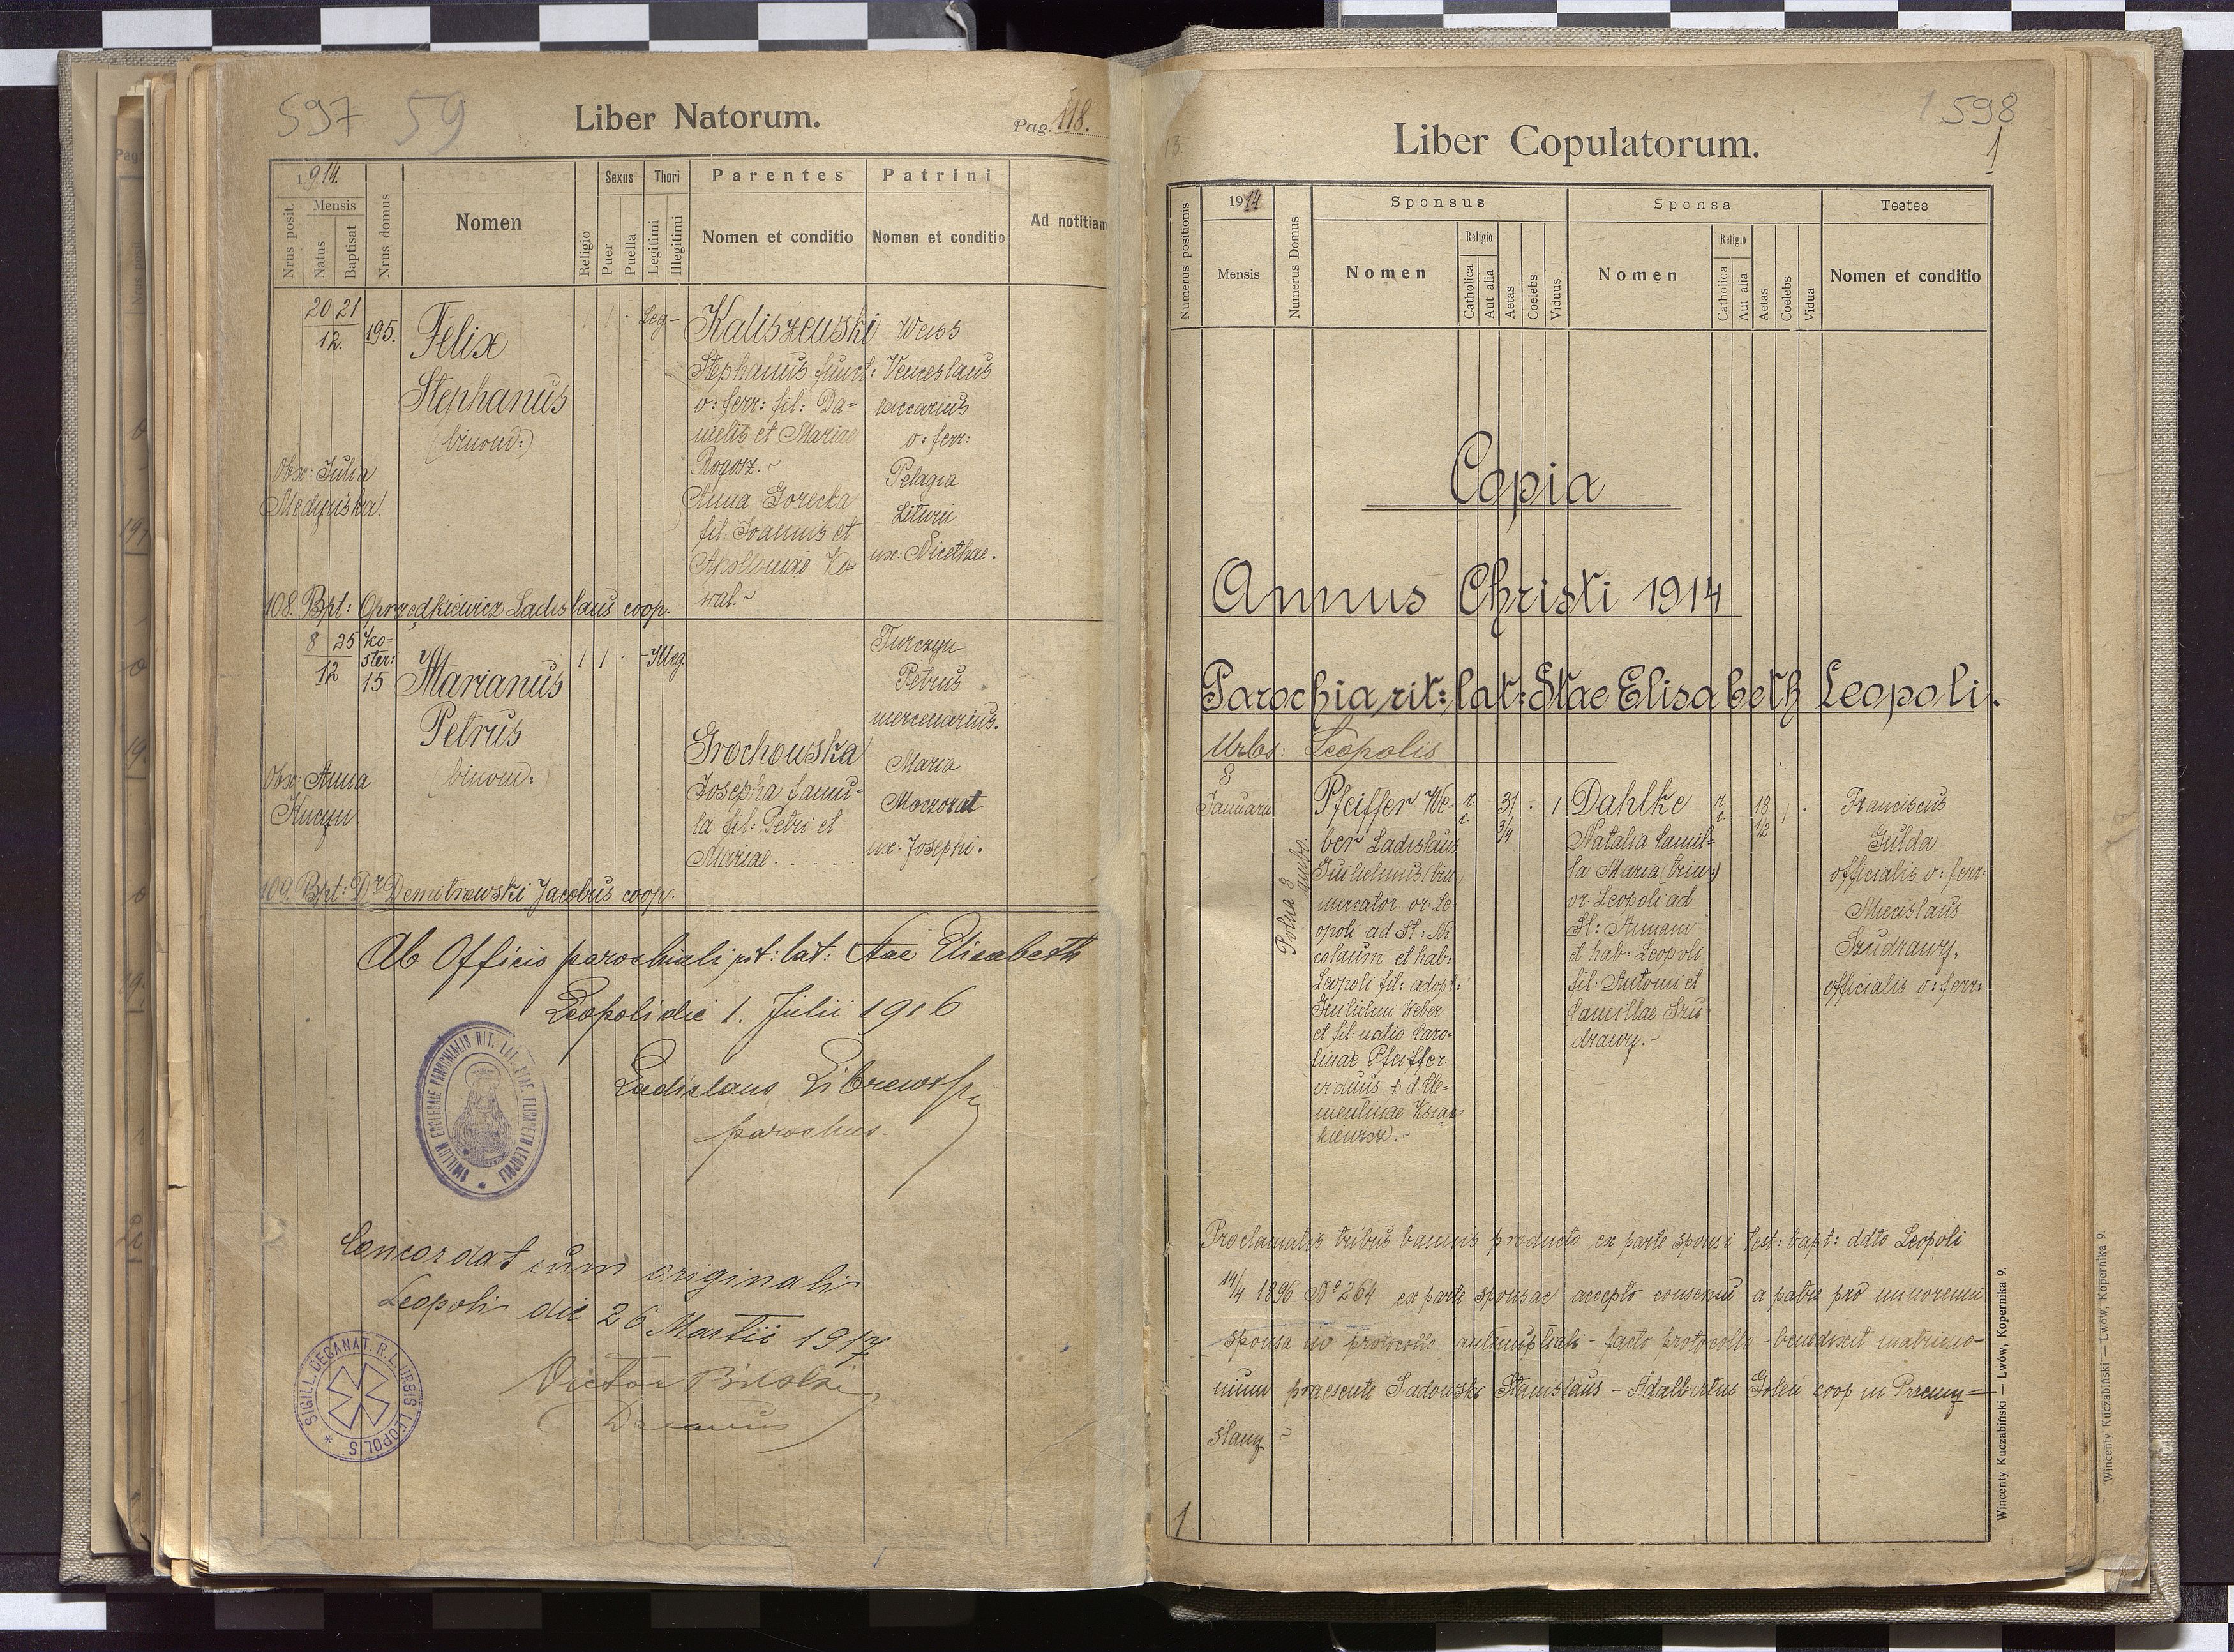 597 59
Liber Natorum.
Pag. 118.
1914.
Nrus posit.
Mensis
Natus
Baptisat
Nrus domus
Nomen
Religio
Sexus
Puer
Puella
Thori
Legitimi
Illegitimi
Parentes
Nomen et conditio
Patrini
Nomen et conditio
Ad notitiam
20 21
12.
195.
Felix
Stephanus
(binom:)
Obx: Julia
Medyńska.
1
Leg-
Kaliszewski
Stephanus funct:
v: ferr: fil: Da=
nielis et Mariae
Rogosz.~
Anna Gorecka
fil: Joannis et
Apolloniae Ko=
wal.~
Weiss
Venceslaus
laccarius
v: ferr:
Pelagia
Liturii
ux: Nicethae.
108. Bpt: Oprzędkiewicz Ladislaus coop.
8 25
12
Ko=
ster:
15
Marianus
Petrus
(binom:
Obx: Anna
Kucyn
1 1 ·
-Illeg.
Grochowska
Josepha famu=
la fil: Petri et
Mariae.....
Turczyn
Petrus
mercenarius.
Maria
Moczorat
ux: Josephi.
109. Bpt: Dr Demitrowski Jacobus coop.
Ab Officio parochiali rit: lat: Stae Elisabeth
Leopoli die 1. Julii 1916
Ladislaus Librewski
parochus.
SIGILLUM ECCLESIAE PAROCHIALIS RIT. LAT. STAE ELISABETH LEOPOLI
Concordat cum originali
Leopoli die 26 Martii 1917
Victor Bilski
Decanus
SIGILL. DECANAT. R. L. URBIS LEOPOLIS
598
1
Liber Copulatorum.
Numerus positionis
1914
Mensis
Numerus Domus
Sponsus
Nomen
Religio
Catholica
Aut alia
Aetas
Coelebs
Viduus
Sponsa
Nomen
Religio
Catholica
Aut alia
Aetas
Coelebs
Vidua
Testes
Nomen et conditio
Copia
Annus Christi 1914
Parochia rit: lat: Stae Elisabeth Leopoli.
Urbs: Leopolis
8
Januarii
Polna 3
ambo.
Pfeiffer We=
ber Ladislaus
Guilelmus (bin:)
mercator or: Le=
opoli ad St: Ni
colaum et hab:
Leopoli fil: adopt:
Guilelmi Weber
et fil: natio Caro=
linae Pfeiffer
viduus p. d. Cle=
mentinae Książ=
kiewicz.~
r.
c.
31
3/4
· 1
Dahlke
Natalia Camil=
la Maria (trin:)
or: Leopoli ad
St: Annam
et hab: Leopoli
fil: Antonii et
Camillae Szu
drawy.~
r.
c.
18
1/2
1 ·
Franciscus
Gulda
officialis v: ferr:
Miecislaus
Szudrawy,
officialis v: ferr:
Proclamatis tribus bannis producto ex parte sponsi test: bapt: ddto Leopoli
14/4 1896 No 264 ex parte sponsae accepto consensu a patre pro minorenni
sponsa in protocollo antenuptiali - facto protocollo - benedixit matrimo=
nium praesente Sadowski Stanislaus - Adalbertus Goleń coop in Przemy=
ślany.~
1
Wincenty Kuczabiński — Lwów, Kopernika 9.
Wincenty Kuczabiński — Lwów, Kopernika 9.